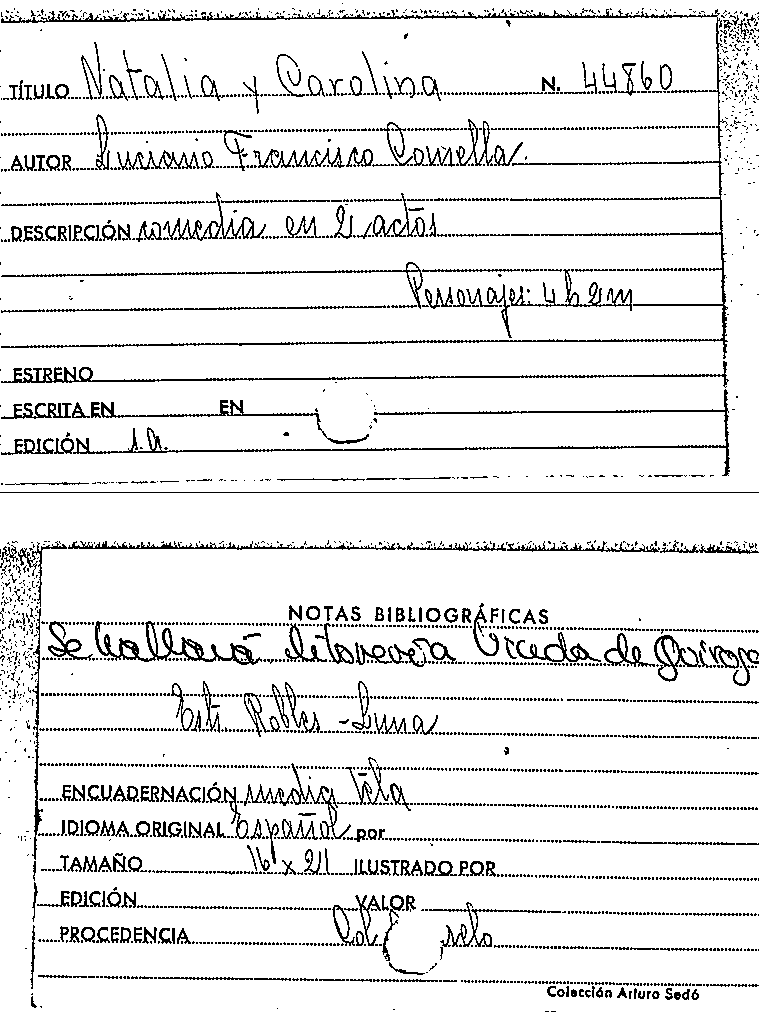 TÍTULO Natalia y Carolina N. 44860
AUTOR Luciano Francisco Comella.
DESCRIPCIÓN comedia en 2 actos
Personajes: 4 h 2 m
ESTRENO
ESCRITA EN EN
EDICIÓN s.a.
NOTAS BIBLIOGRÁFICAS
Se hallará Viuda de Quiroga
Robles - Luna
ENCUADERNACIÓN media tela
IDIOMA ORIGINAL Español por
TAMAÑO 16 x 21 ILUSTRADO POR
EDICIÓN VALOR
PROCEDENCIA
Colección Arturo Sedó